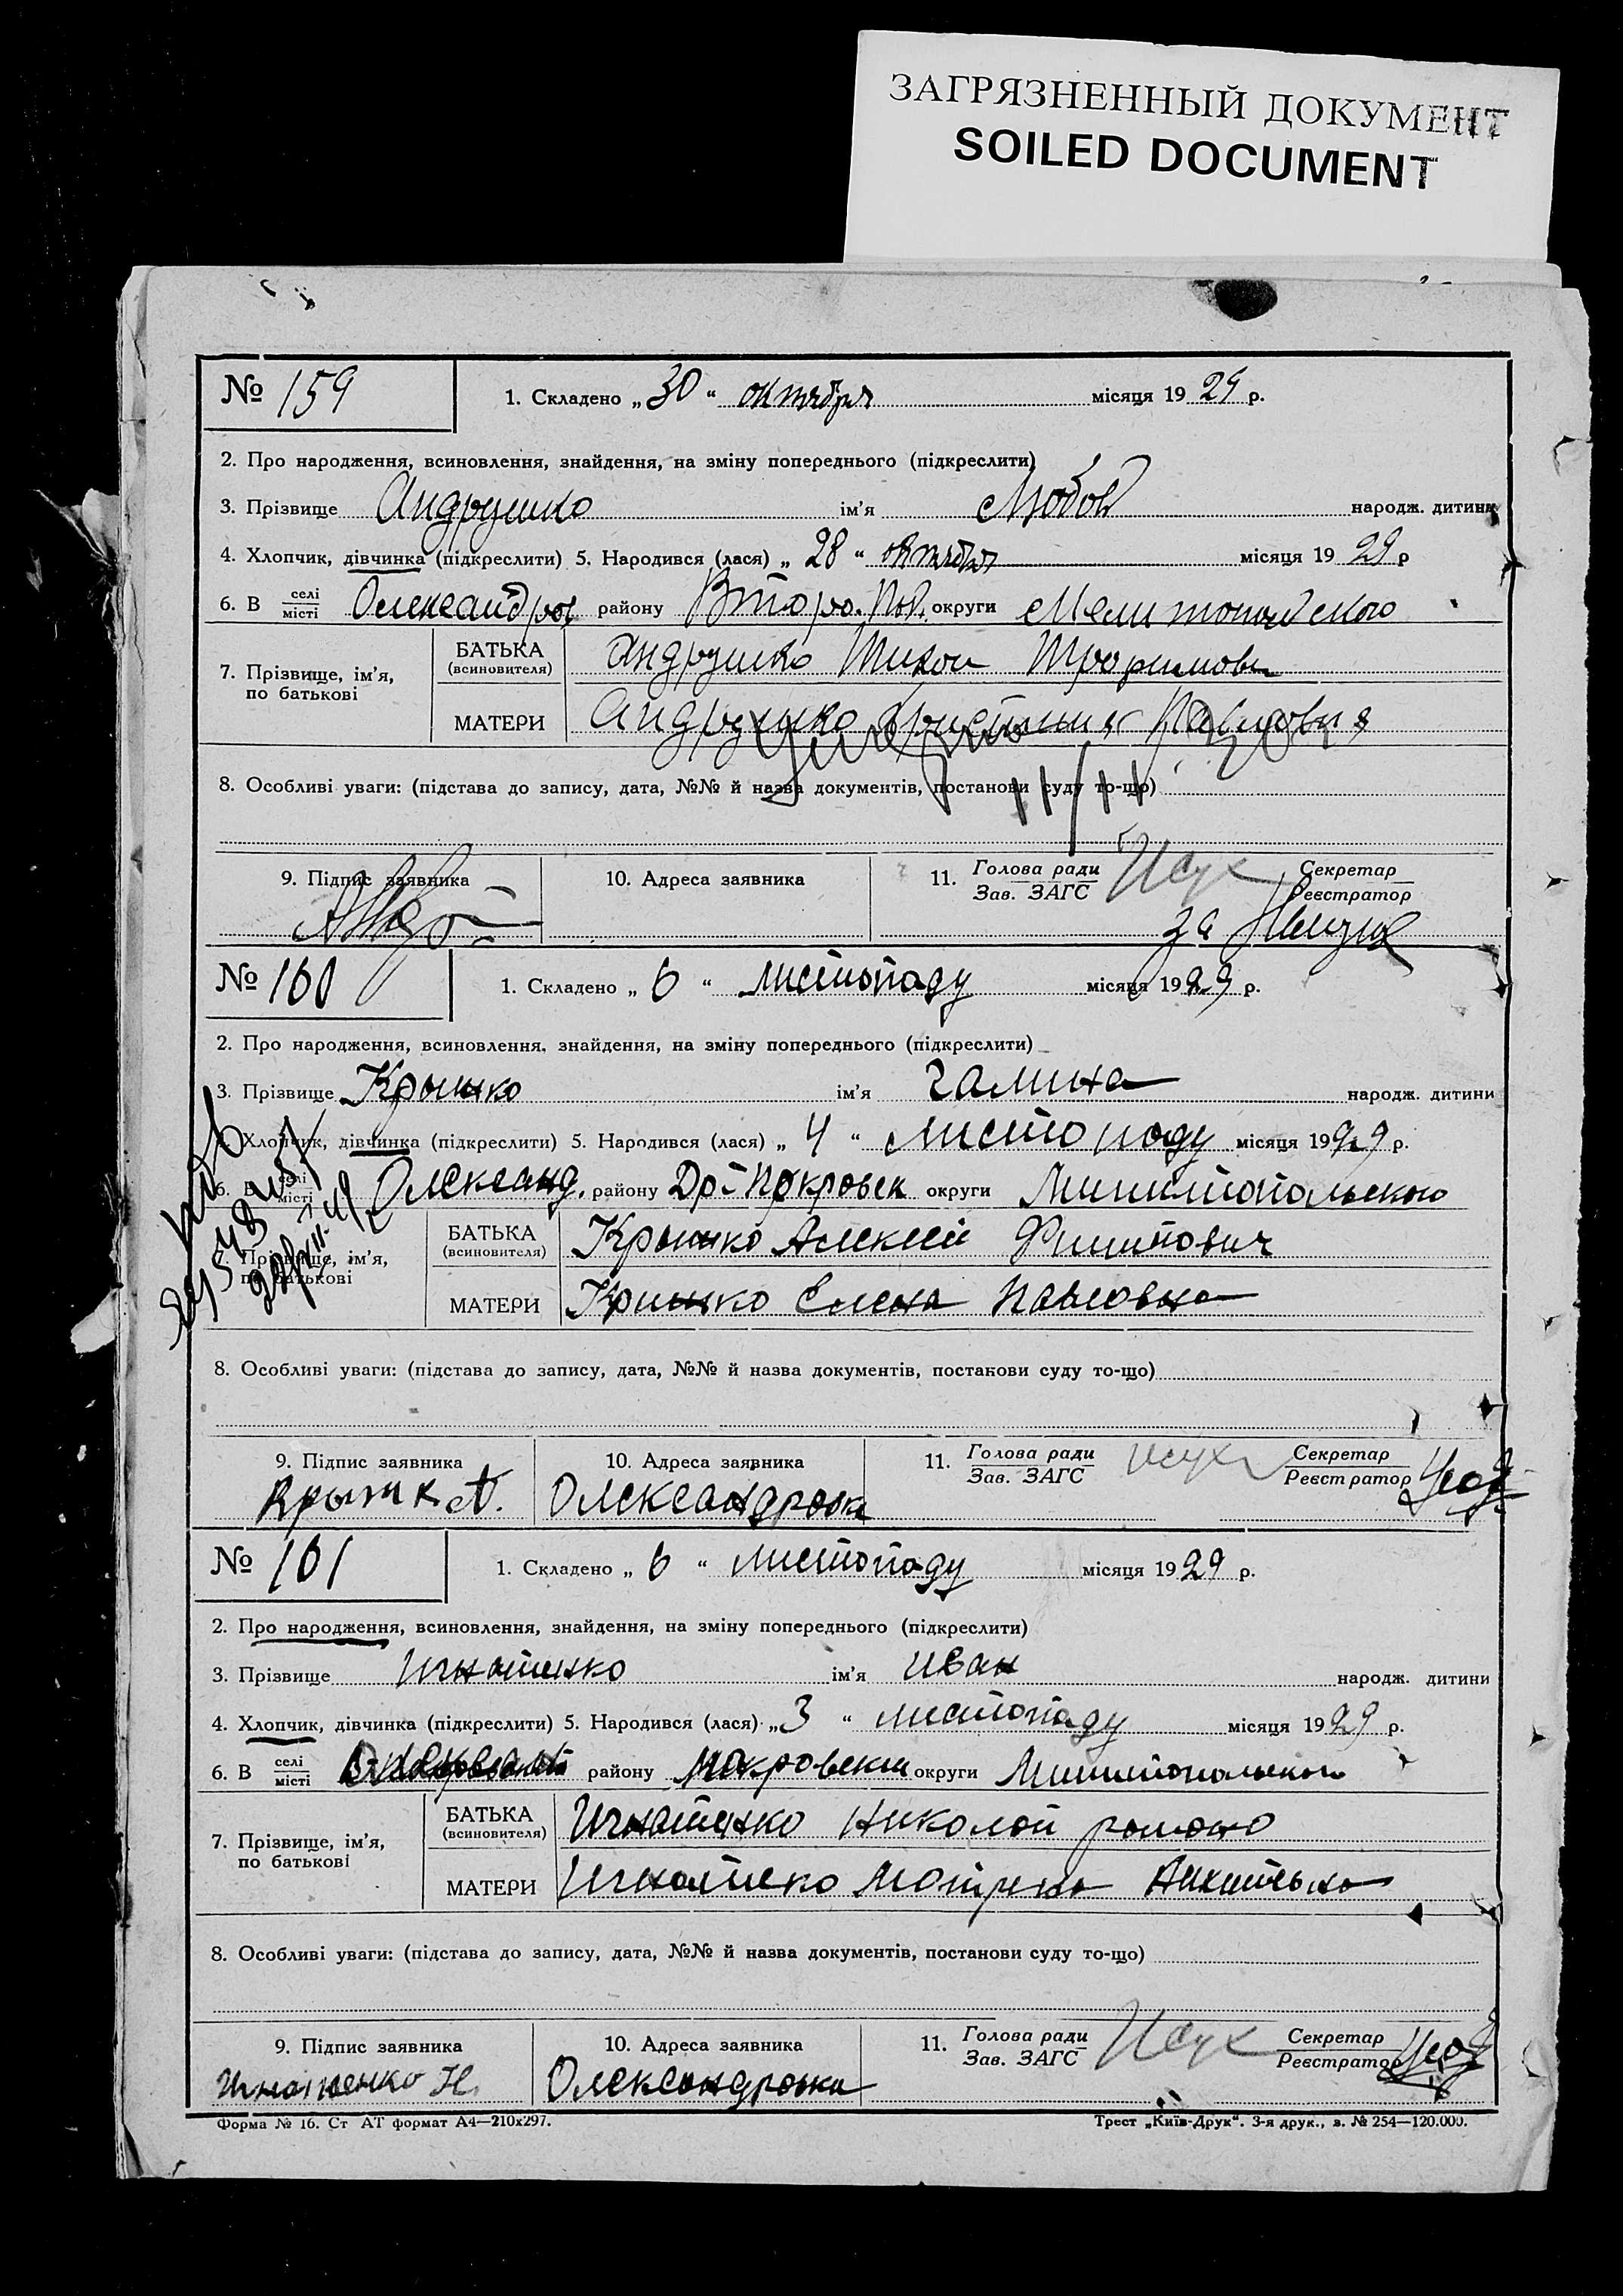 ЗАГРЯЗНЕННЫЙ ДОКУМЕНТ
SOILED DOCUMENT
№ 159 1. Складено „ 30 “ октября місяця 19 29 р.
2. Про народження, всиновлення, знайдення, на зміну попереднього (підкреслити)
3. Прізвище Андрушко ім'я Любов народж. дитини
4. Хлопчик, дівчинка (підкреслити) 5. Народився (лася) „ 28 “ октября місяця 19 29 р
6. В селі місті Олександров району Второ. Пок. округи Мелитопольского
7. Прізвище, ім'я, по батькові
БАТЬКА (всиновителя) Андрушко Тихон Трофимович
МАТЕРИ Андрушко Павловна
11/11
8. Особливі уваги: (підстава до запису, дата, №№ й назва документів, постанови суду то-що)
9. Підпис заявника 10. Адреса заявника 11. Голова ради Зав. ЗАГС Секретар Реєстратор
за
№ 160 1. Складено „ 6 “ листопаду місяця 19 29 р.
2. Про народження, всиновлення, знайдення, на зміну попереднього (підкреслити)
3. Прізвище Крышко ім'я Галина народж. дитини
4. Хлопчик, дівчинка (підкреслити) 5. Народився (лася) „ 4 “ листоподу місяця 19 29 р.
6. В селі місті Олександ. району Др-Покровск округи
7. Прізвище, ім'я, по батькові
БАТЬКА (всиновителя) Крышко Алексей Филипович
МАТЕРИ Кришко Елена Павловна
8. Особливі уваги: (підстава до запису, дата, №№ й назва документів, постанови суду то-що)
9. Підпис заявника 10. Адреса заявника 11. Голова ради Зав. ЗАГС Секретар Реєстратор
А. Олександровка
№ 161 1. Складено „ 6 “ листопаду місяця 19 29 р.
2. Про народження, всиновлення, знайдення, на зміну попереднього (підкреслити)
3. Прізвище Игнатенко ім'я Иван народж. дитини
4. Хлопчик, дівчинка (підкреслити) 5. Народився (лася) „ 3 “ листопаду місяця 19 29 р.
6. В селі місті району Покровский округи
7. Прізвище, ім'я, по батькові
БАТЬКА (всиновителя) Игнатенко Николай
МАТЕРИ Игнатеко Мотрена
8. Особливі уваги: (підстава до запису, дата, №№ й назва документів, постанови суду то-що)
9. Підпис заявника 10. Адреса заявника 11. Голова ради Зав. ЗАГС Секретар Реєстратор
Игнатенко Н. Олександровка
Форма № 16. Ст АТ формат А4—210х297. Трест „Київ-Друк“. 3-я друк., з. № 254—120.000.